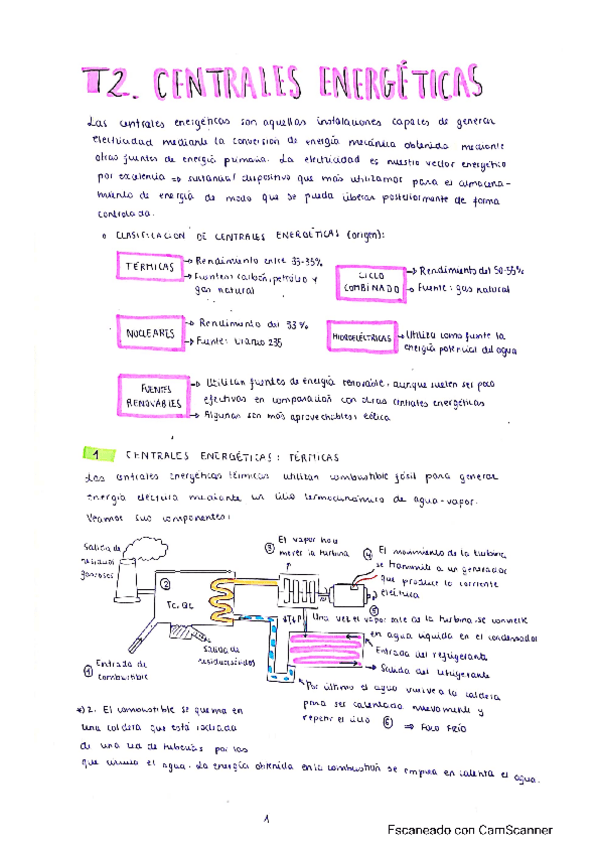 T2. CENTRALES ENERGÉTICAS
Las centrales energéticas son aquellas instalaciones capaces de generar
electricidad mediante la conversión de energía mecánica obtenida mediante
otras fuentes de energía primaria. La electricidad es nuestro vector energético
por excelencia => sustancia/dispositivo que más utilizamos para el almacena-
miento de energía de modo que se pueda liberar posteriormente de forma
controlada.
• CLASIFICACIÓN DE CENTRALES ENERGÉTICAS (origen):
TÉRMICAS
→ Rendimiento entre 33-35%
→ Fuentes: carbón, petróleo y
gas natural
CICLO
COMBINADO
→ Rendimiento del 50-55%
→ Fuente: gas natural
NUCLEARES
→ Rendimiento del 33%
→ Fuente: Uranio 235
HIDROELÉCTRICAS
→ Utiliza como fuente la
energía potencial del agua
FUENTES
RENOVABLES
→ Utilizan fuentes de energía renovable, aunque suelen ser poco
efectivas en comparación con otras centrales energéticas
→ Algunas son más aprovechables: eólica
1 CENTRALES ENERGÉTICAS: TÉRMICAS
Las centrales energéticas térmicas utilizan combustible fósil para generar
energía eléctrica mediante un ciclo termodinámico de agua-vapor.
Veamos sus componentes:
Salida de
residuos
gaseosos
② 
③ El vapor hace
mover la turbina
④ El movimiento de la turbina
se transmite a un generador
que produce la corriente
eléctrica
⑤
Una vez el vapor sale de la turbina se convierte
en agua líquida en el condensador
Entrada del refrigerante
Salida del refrigerante
Salida de
residuos
① Entrada de
combustible
Por último el agua vuelve a la caldera
para ser calentada nuevamente y
repetir el ciclo ⑥ ⇒ FOCO FRÍO
*) 2. El combustible se quema en
una caldera que está rodeada
de una red de tuberías por las
que circula el agua. La energía obtenida en la combustión se emplea en calentar el agua.
1
Escaneado con CamScanner